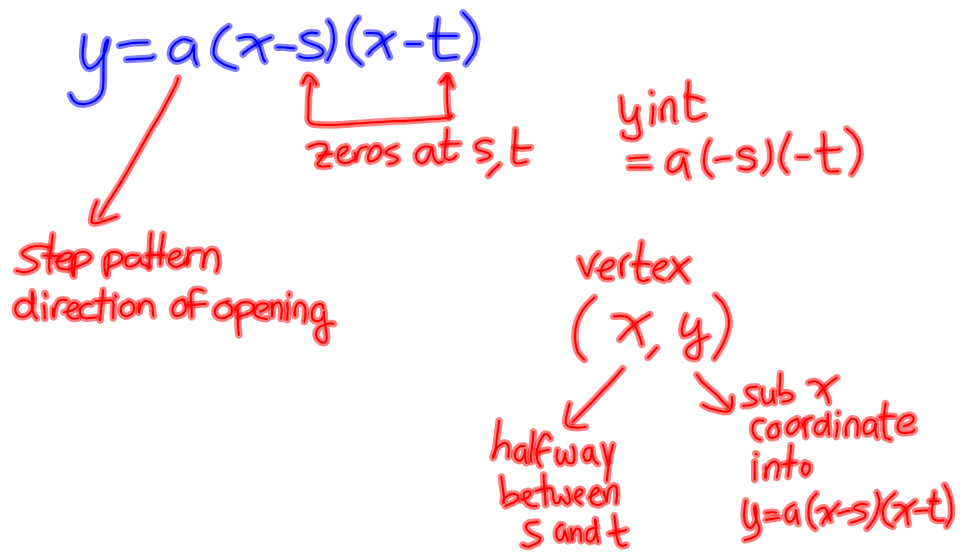 y=a(x-s)(x-t)
zeros at s,t
yint
=a(-s)(-t)
step pattern
direction of opening
vertex
(x, y)
halfway
between
s and t
sub x
coordinate
into
y=a(x-s)(x-t)